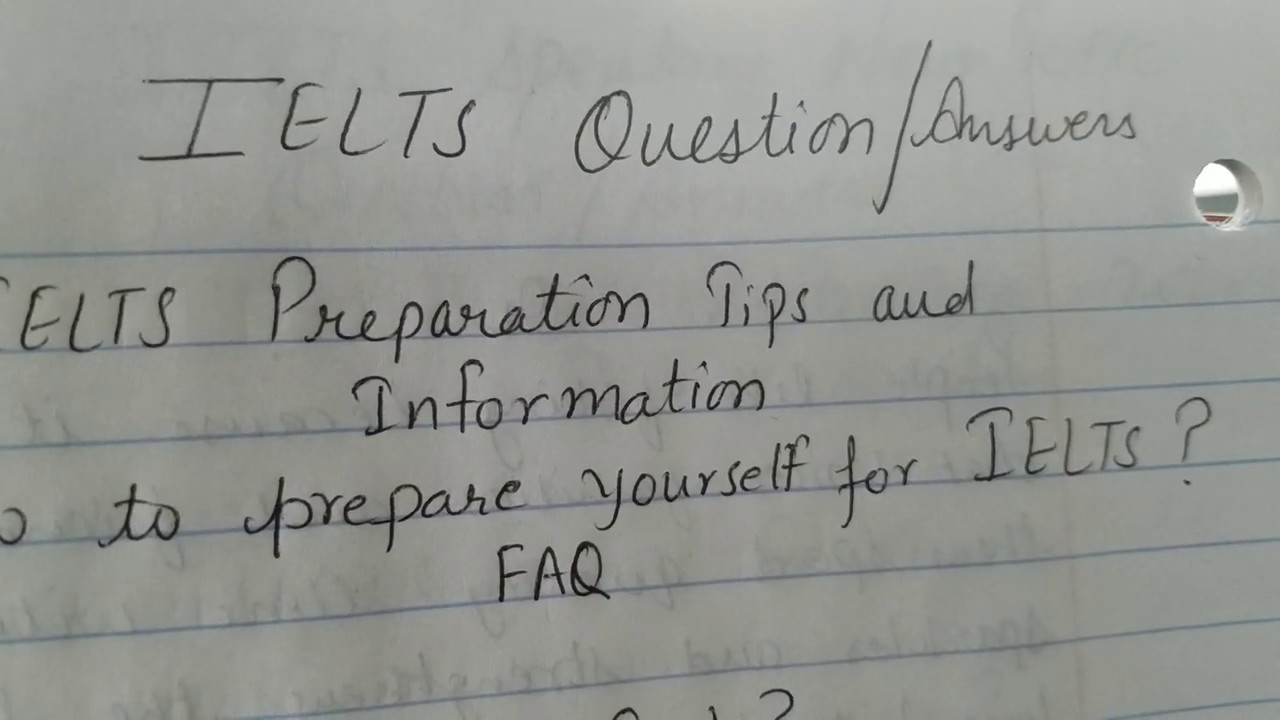 IELTS Question/Answers
ELTS Preparation Tips and
Information
to prepare yourself for IELTS?
FAQ